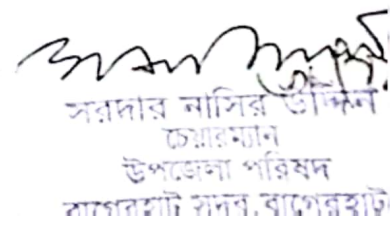 সরদার নাসির উদ্দিন
চেয়ারম্যান
উপজেলা পরিষদ
বাগেরহাট সদর, বাগেরহাট